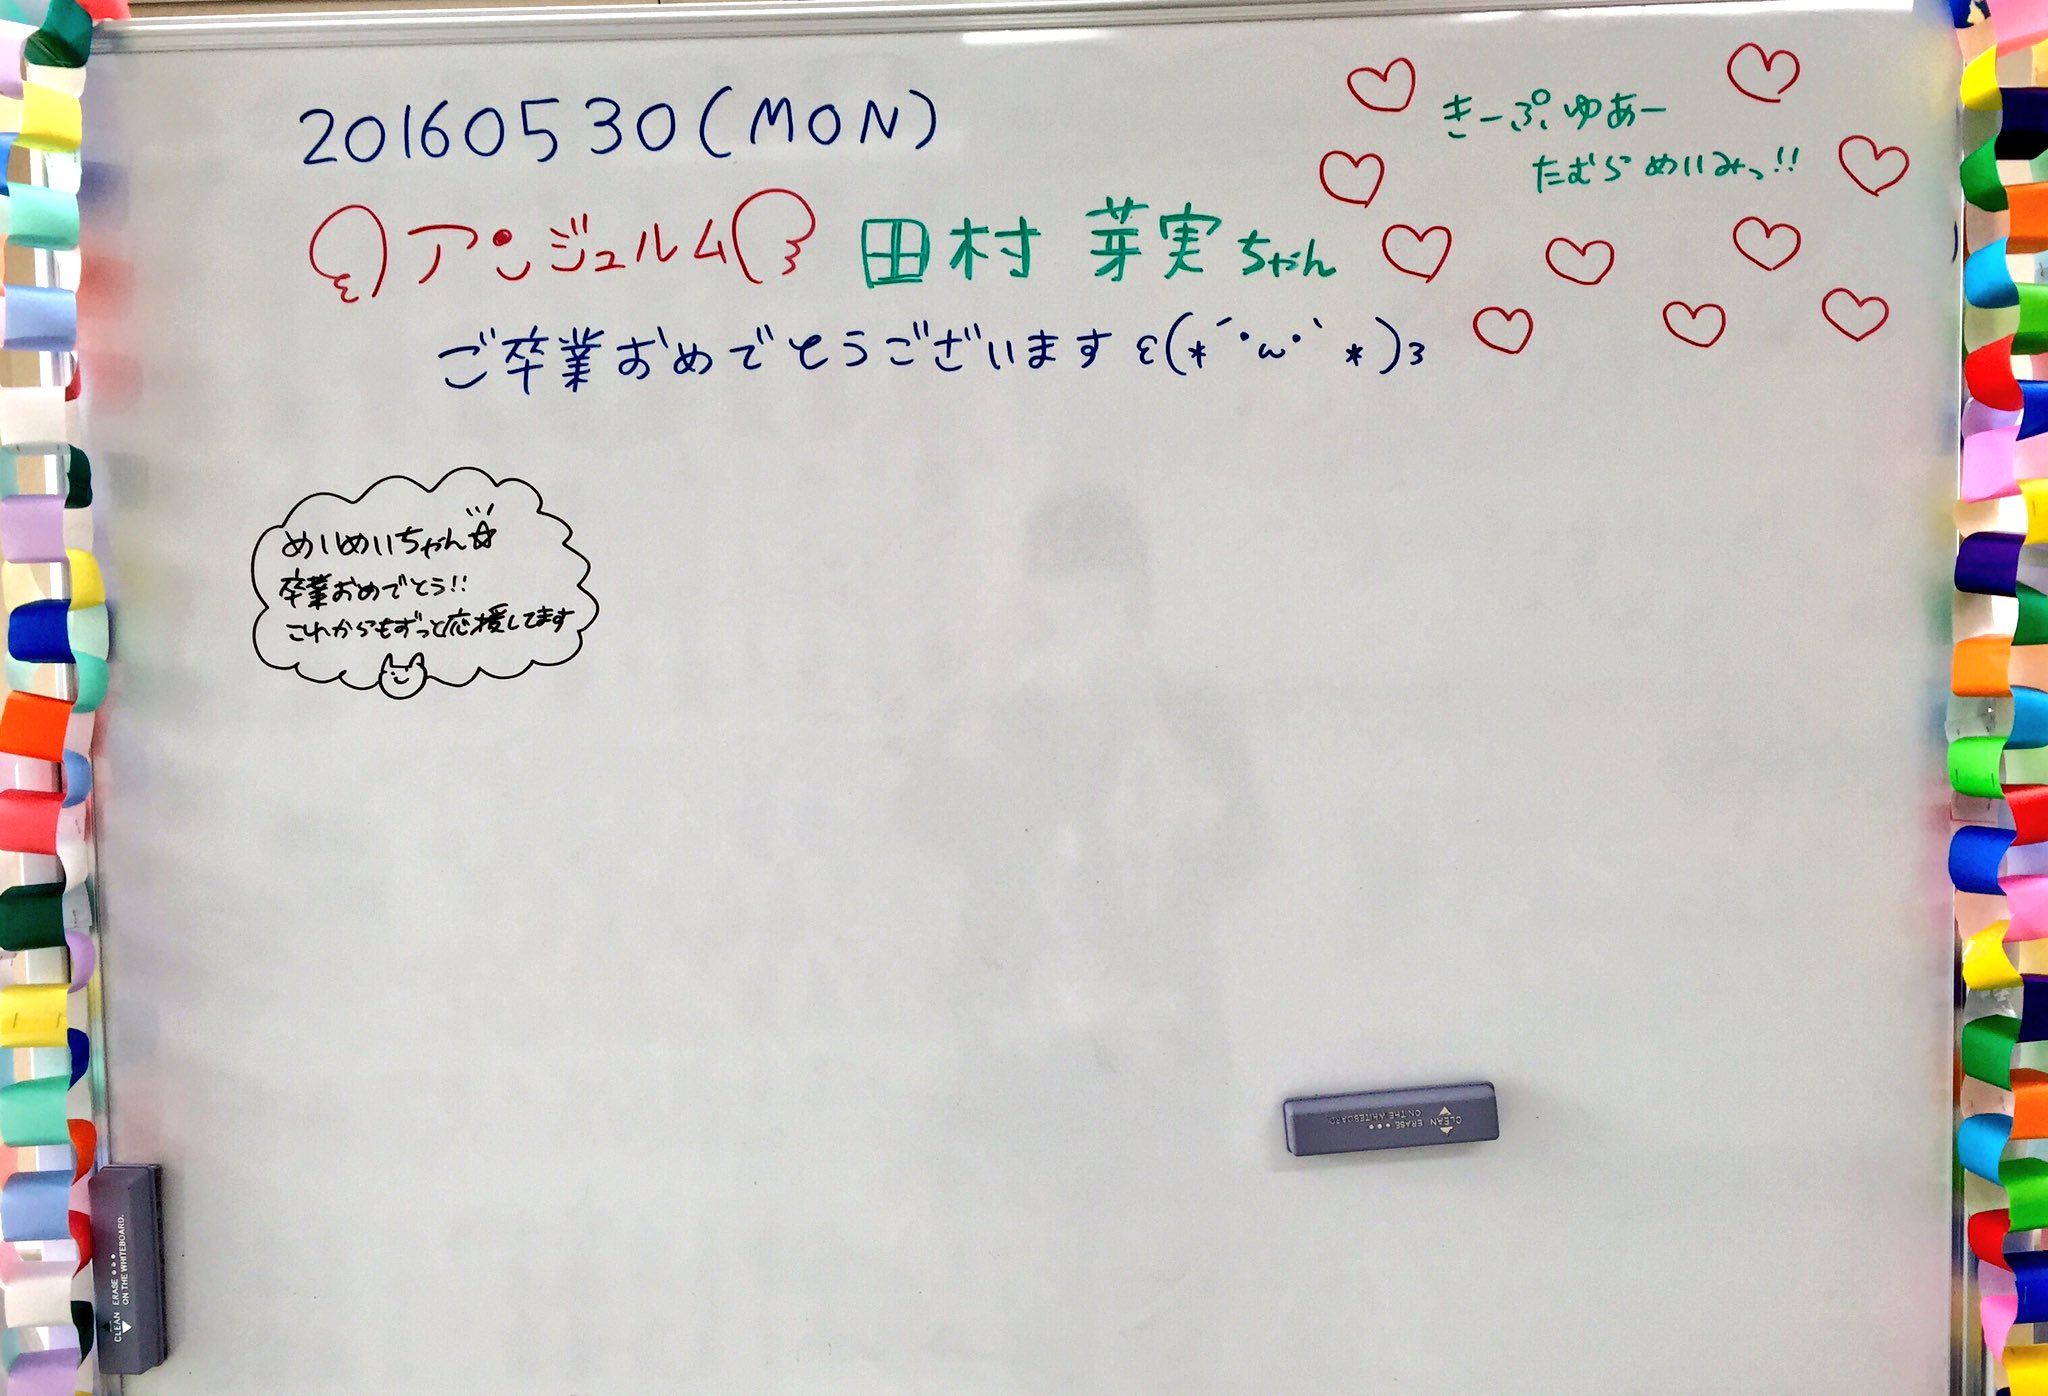 20160530(MON)
きーぷゆあー
たむらめいみっ!!
アンジュルム 田村 芽実ちゃん
ご卒業おめでとうございます ε(*´・ω・｀*)з
めいめいちゃん☆
卒業おめでとう!!
これからもずっと応援してます
CLEAN ERASE •••
ON THE WHITEBOARD.
CLEAN ERASE •••
ON THE WHITEBOARD.